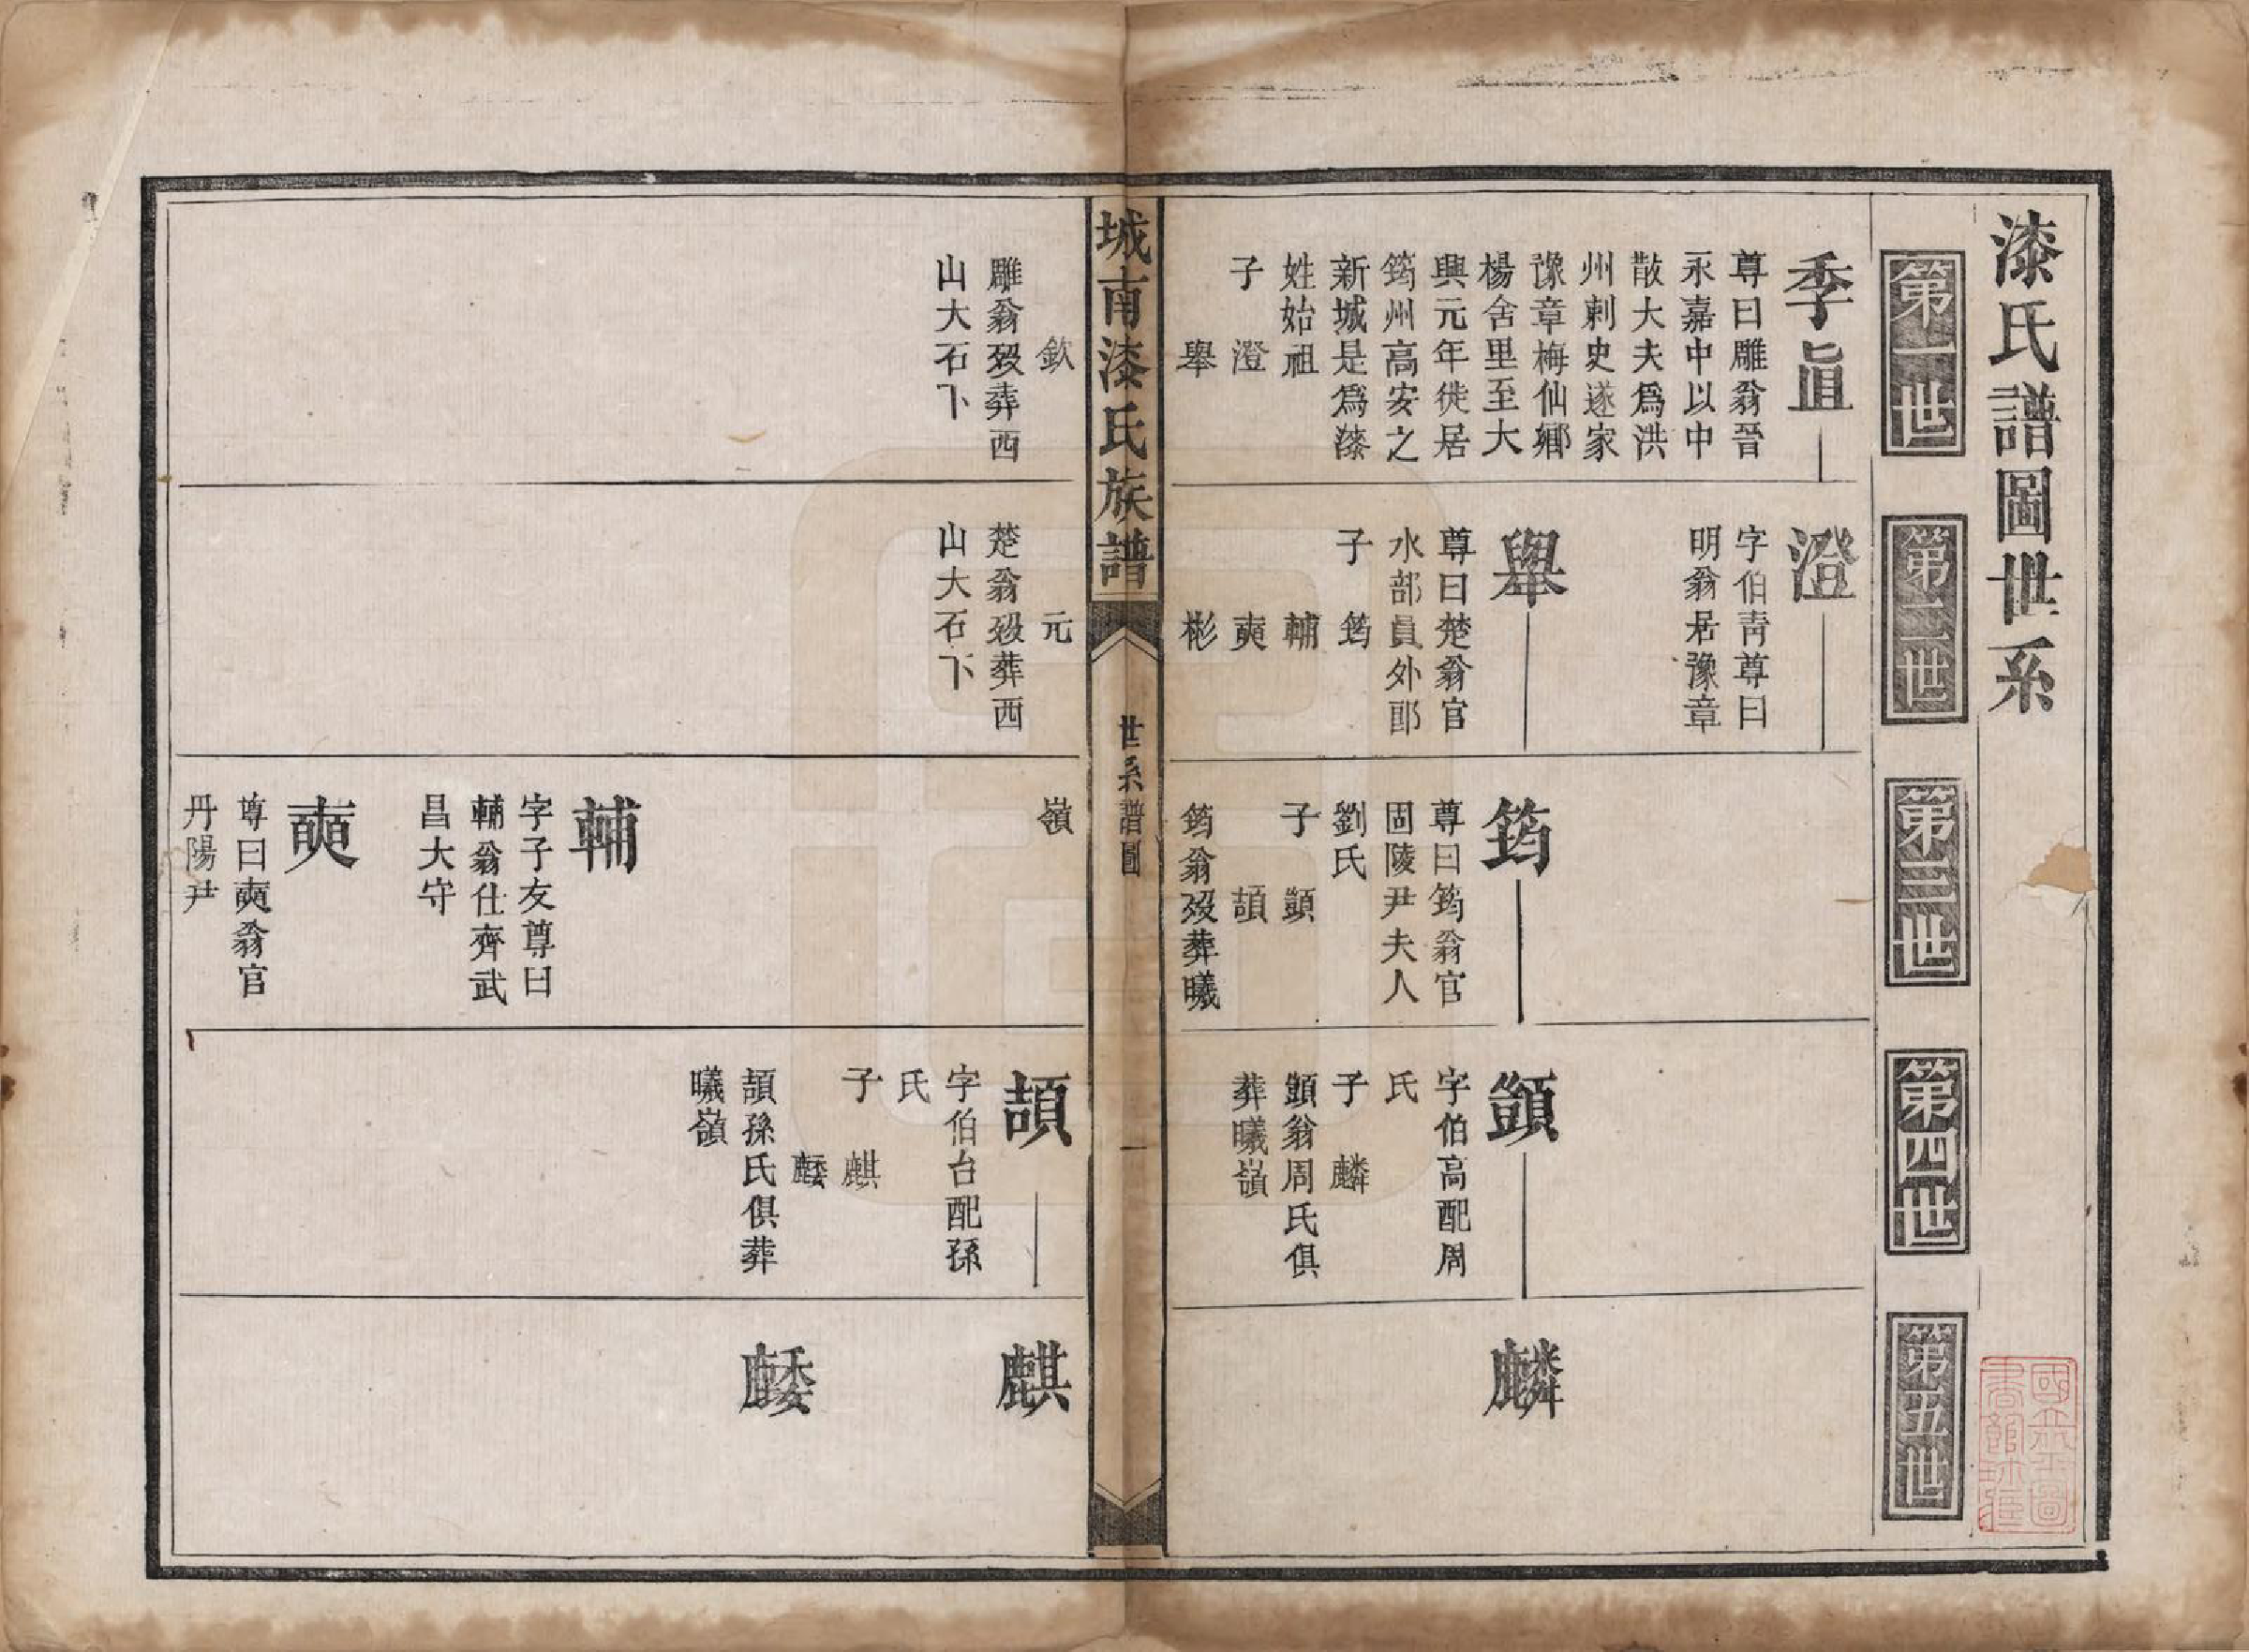 漆氏譜圖世系
第一世
第二世
第三世
第四世
第五世
季眞
尊曰雕翁晉
永嘉中以中
散大夫爲洪
州刺史遂家
豫章梅仙鄉
楊舍里至大
興元年徙居
筠州高安之
新城是爲漆
姓始祖
子 澄
舉
澄
字伯靑尊曰
明翁居豫章
舉
尊曰楚翁官
水部員外郎
子 筠
輔
奭
彬
筠
尊曰筠翁官
固陵尹夫人
劉氏
子 顗
頡
筠翁歿葬曦
顗
字伯高配周
氏
子 麟
顗翁周氏俱
葬曦嶺
麟
城南漆氏族譜
世系譜圖
一
欽
雕翁歿葬西
山大石下
元
楚翁歿葬西
山大石下
嶺
輔
字子友尊曰
輔翁仕齊武
昌大守
奭
尊曰奭翁官
丹陽尹
頡
字伯台配孫
氏
子 麒
頡孫氏俱葬
曦嶺
麒
國立北平圖
書館珍藏